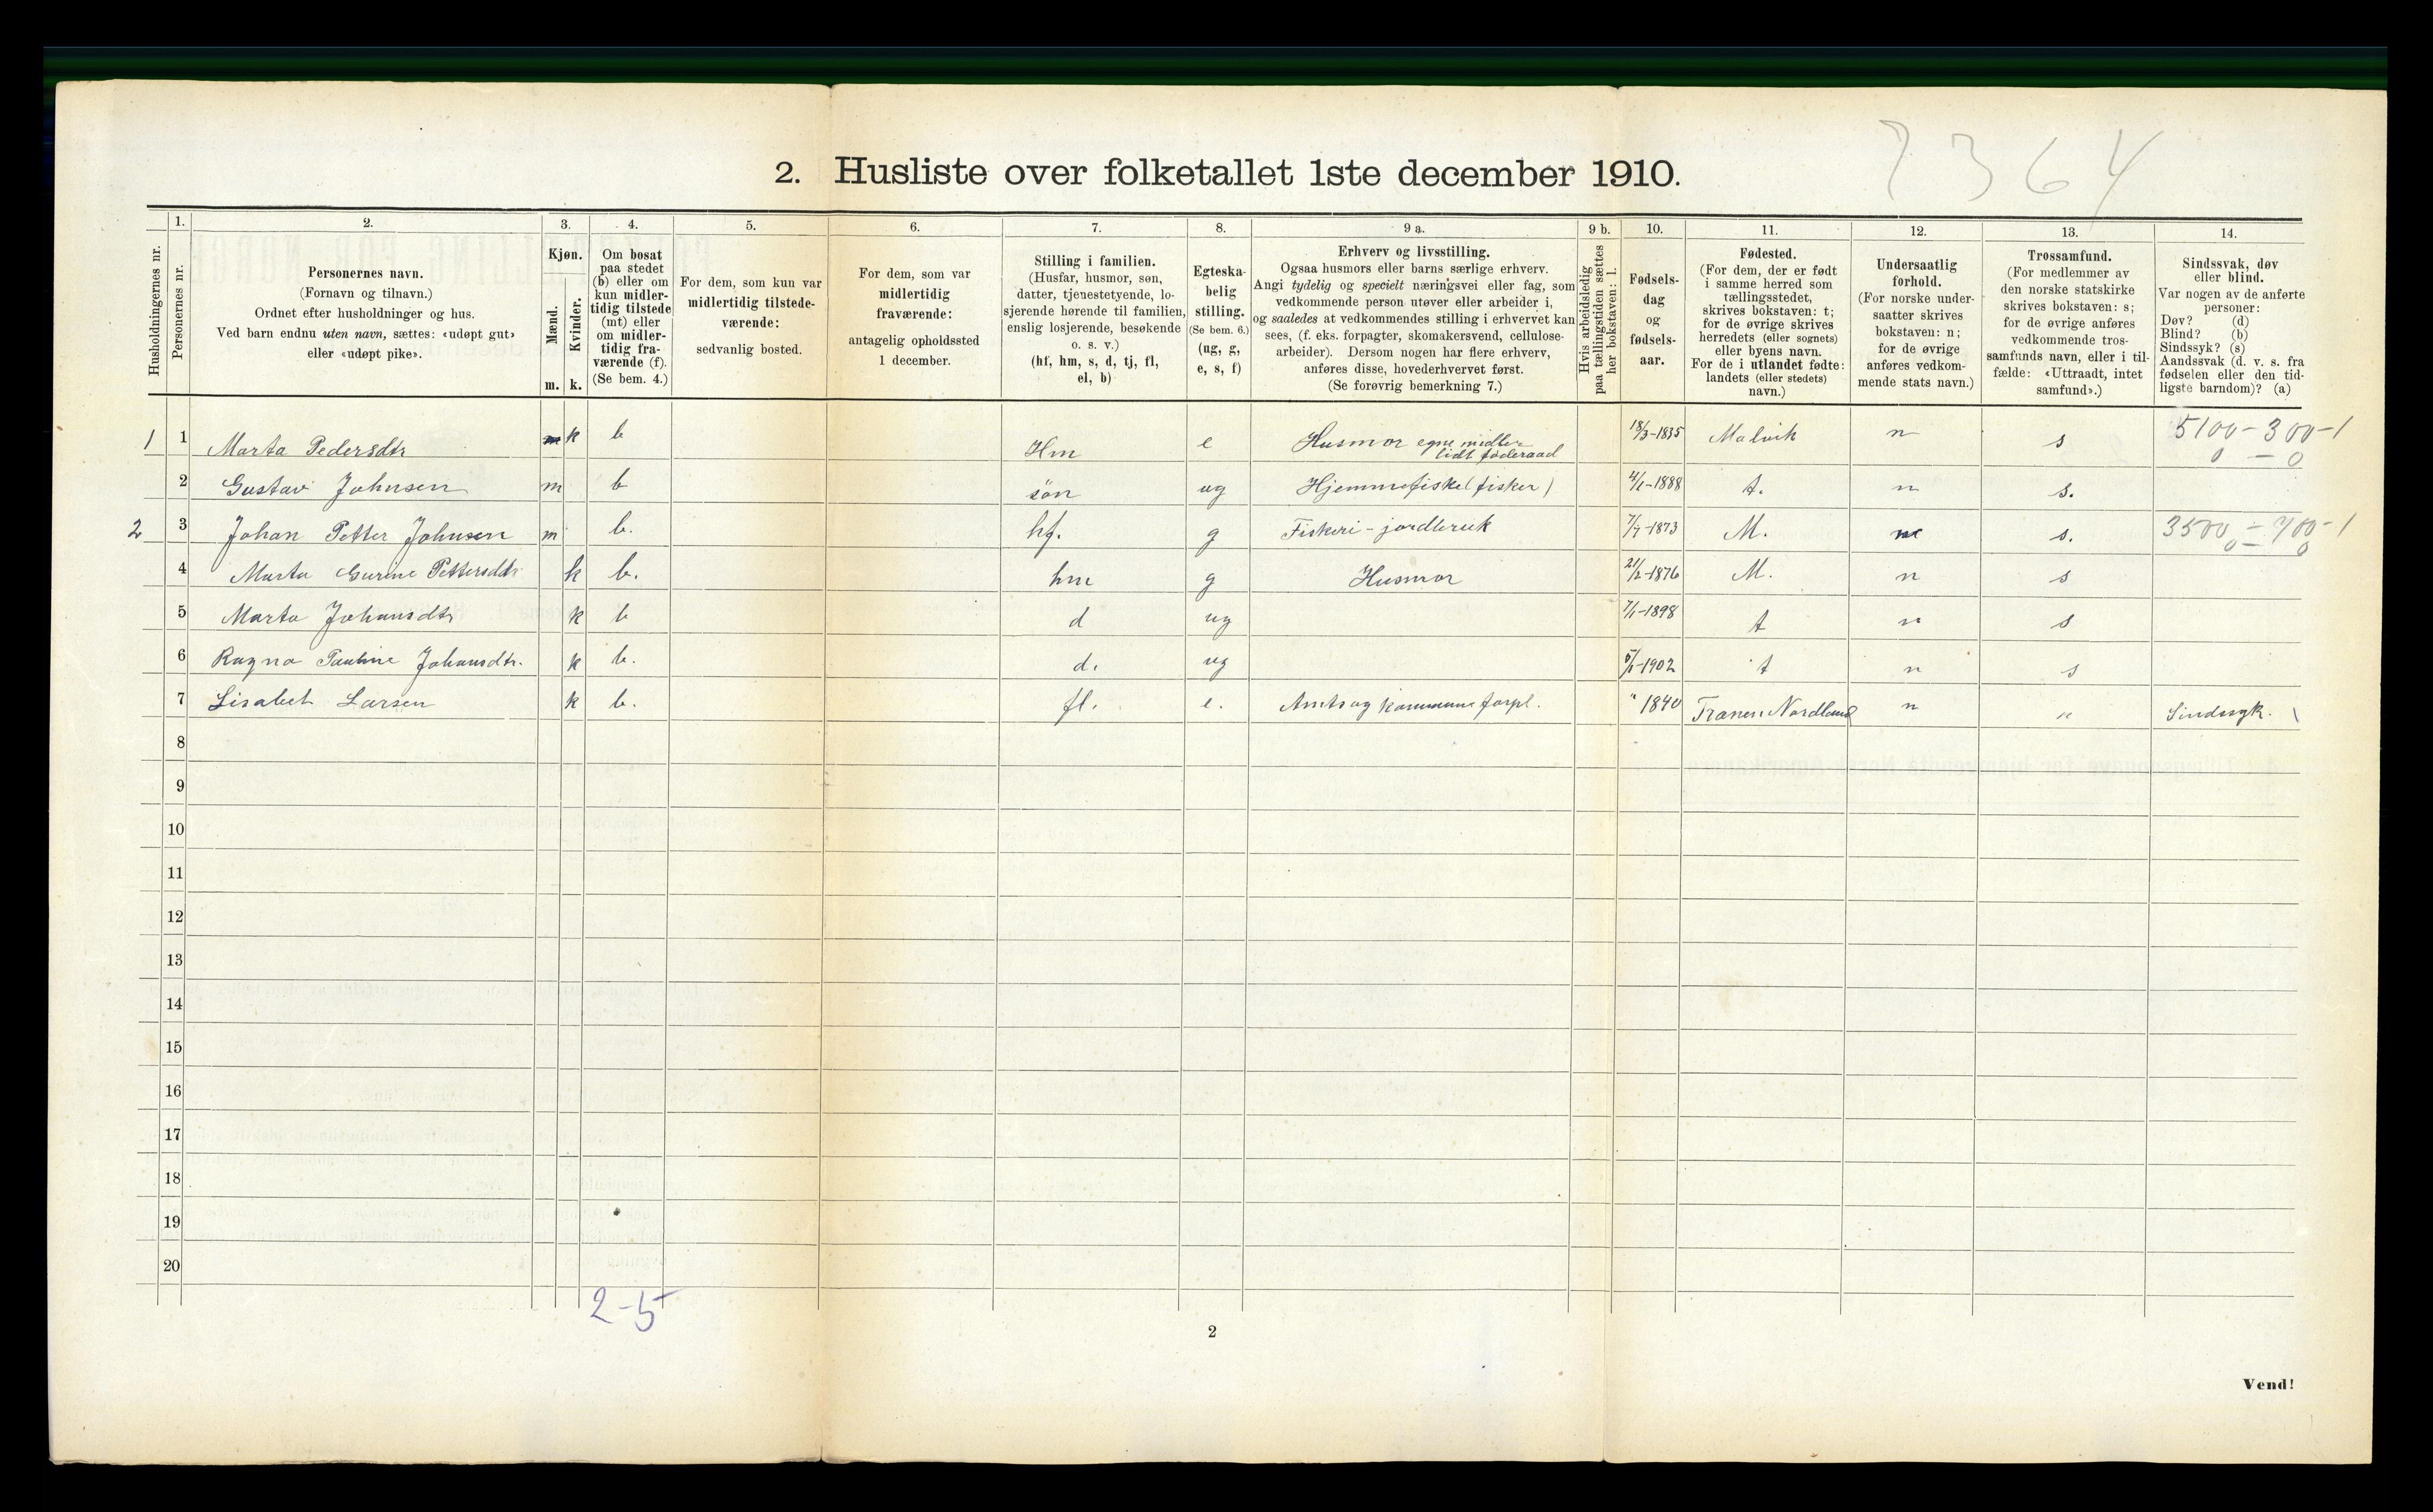 7364
2. Husliste over folketallet 1ste december 1910.
Husholdningernes nr.
1.
Personernes nr.
2.
Personernes navn.
(Fornavn og tilnavn.)
Ordnet efter husholdninger og hus.
Ved barn endnu uten navn, sættes: «udøpt gut»
eller «udøpt pike».
3.
Kjøn.
Mænd.
m.
Kvinder.
k.
4.
Om bosat
paa stedet
(b) eller om
kun midler-
tidig tilstede
(mt) eller
om midler-
tidig fra-
værende (f).
(Se bem. 4.)
5.
For dem, som kun var
midlertidig tilstede-
værende:
sedvanlig bosted.
6.
For dem, som var
midlertidig
fraværende:
antagelig opholdssted
1 december.
7.
Stilling i familien.
(Husfar, husmor, søn,
datter, tjenestetyende, lo-
sjerende hørende til familien,
enslig losjerende, besøkende
o. s. v.)
(hf, hm, s, d, tj, fl,
el, b)
8.
Egteska-
belig
stilling.
(Se bem. 6.)
(ug, g,
e, s, f)
9 a.
Erhverv og livsstilling.
Ogsaa husmors eller barns særlige erhverv.
Angi tydelig og specielt næringsvei eller fag, som
vedkommende person utøver eller arbeider i,
og saaledes at vedkommendes stilling i erhvervet kan
sees, (f. eks. forpagter, skomakersvend, cellulose-
arbeider). Dersom nogen har flere erhverv,
anføres disse, hovederhvervet først.
(Se forøvrig bemerkning 7.)
9 b.
Hvis arbeidsledig
paa tællingstiden sættes
her bokstaven: l.
10.
Fødsels-
dag
og
fødsels-
aar.
11.
Fødested.
(For dem, der er født
i samme herred som
tællingsstedet,
skrives bokstaven: t;
for de øvrige skrives
herredets (eller sognets)
eller byens navn.
For de i utlandet fødte:
landets (eller stedets)
navn.)
12.
Undersaatlig
forhold.
(For norske under-
saatter skrives
bokstaven: n;
for de øvrige
anføres vedkom-
mende stats navn.)
13.
Trossamfund.
(For medlemmer av
den norske statskirke
skrives bokstaven: s;
for de øvrige anføres
vedkommende tros-
samfunds navn, eller i til-
fælde: «Uttraadt, intet
samfund».)
14.
Sindssvak, døv
eller blind.
Var nogen av de anførte
personer:
Døv? (d)
Blind? (b)
Sindssyk? (s)
Aandssvak (d. v. s. fra
fødselen eller den tid-
ligste barndom)? (a)
1 1 Marta Pedersdtr k b Hm e Husmor egne midler lidt føderaad 18/3-1835 Malvik n s 5100-300-1
0 - 0
2 Gustav Johnsen m b søn ug Hjemmefiske (fisker) 4/1-1888 t. n s.
2 3 Johan Petter Johnsen m b. hf. g Fiskeri-jordbruk 7/7-1873 M. n s. 3500-700-1
0 - 0
4 Marta Gurine Pettersdtr k b. hm g Husmor 21/2-1876 M. n s
5 Marta Johansdtr k b d ug 7/1-1898 t n s
6 Ragna Pauline Johansdtr. k b. d. ug 5/1-1902 t n s
7 Lisabet Larsen k b. fl. e. Amts og kommune forpl. " 1840 Tranen Nordland n " Sindssyk. \
8
9
10
11
12
13
14
15
16
17
18
19
20
2-5
2
Vend!